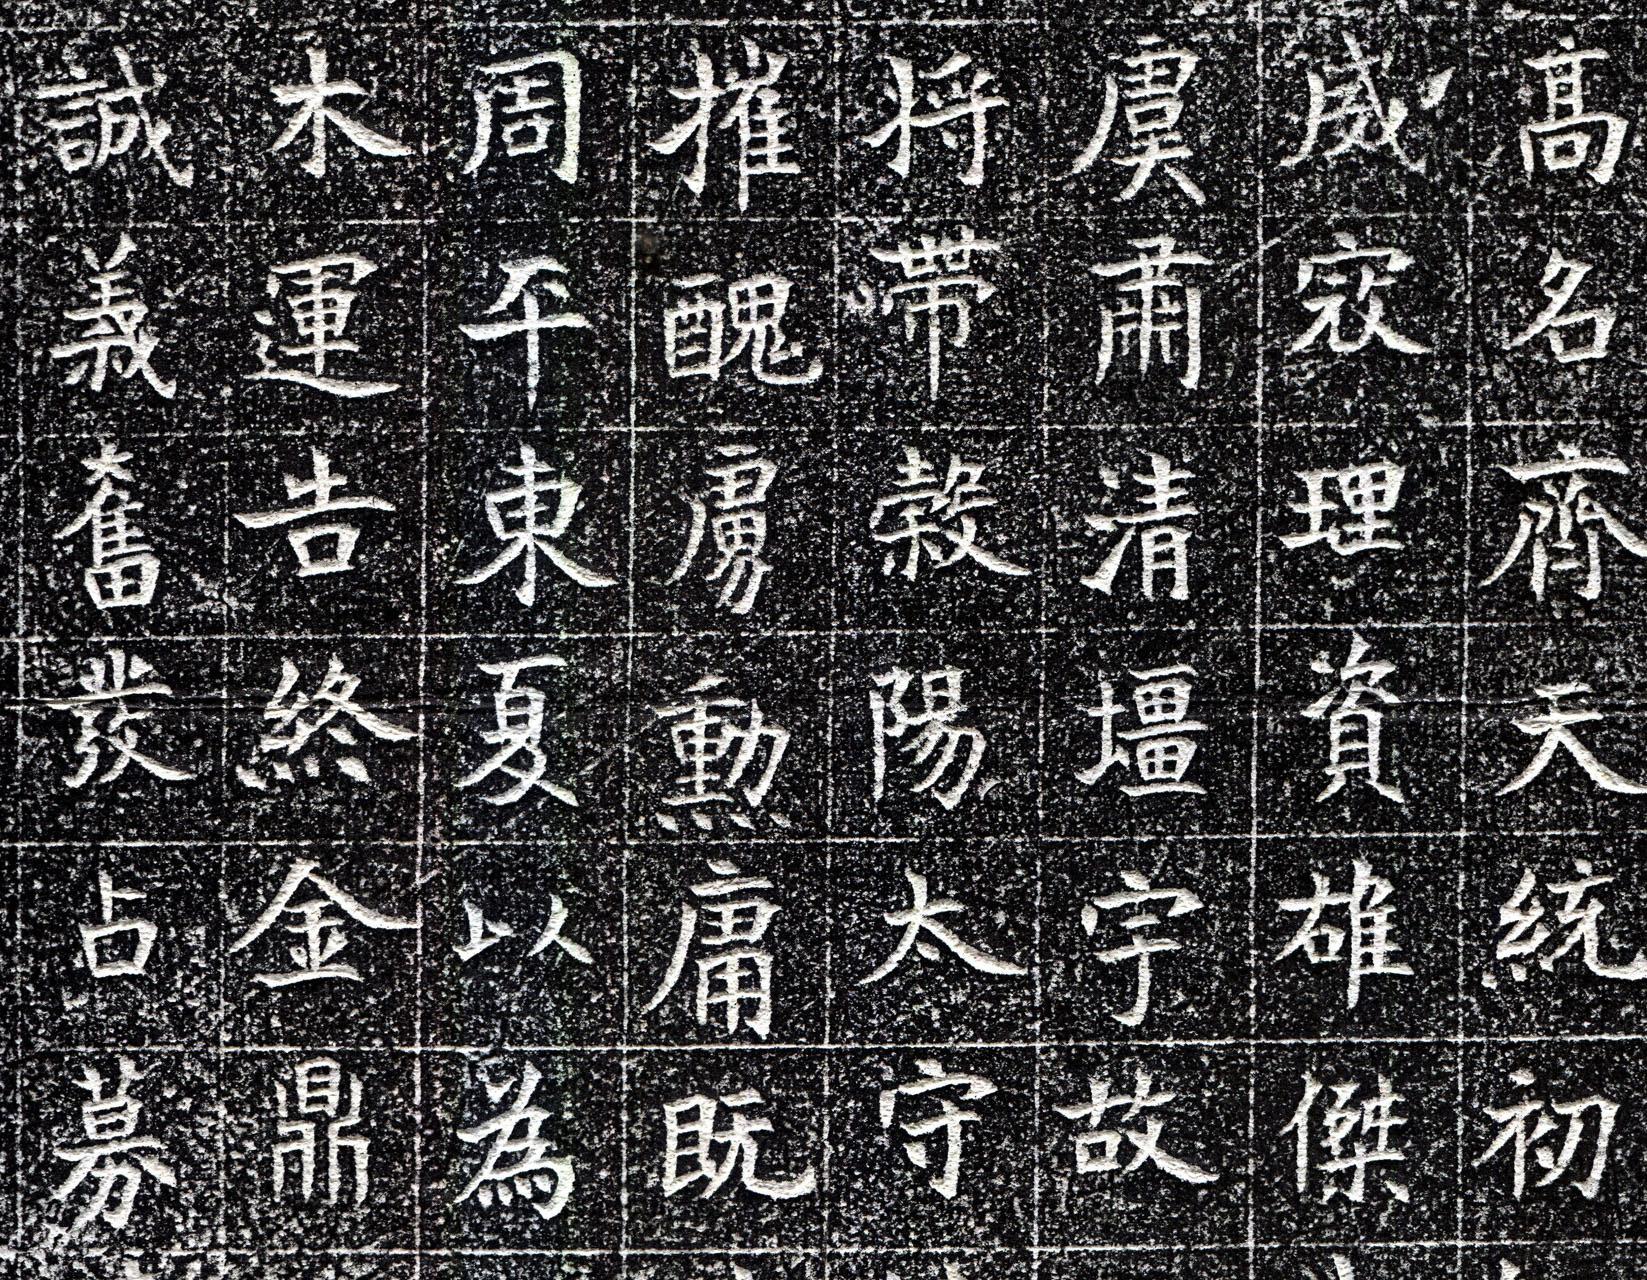 高名齊天統初
威理資雄傑
虞肅清壃宇故
将帶穀陽太守
摧醜虜勳庸既
周平東夏以為
木運告終金鼎
誠義奮發占募